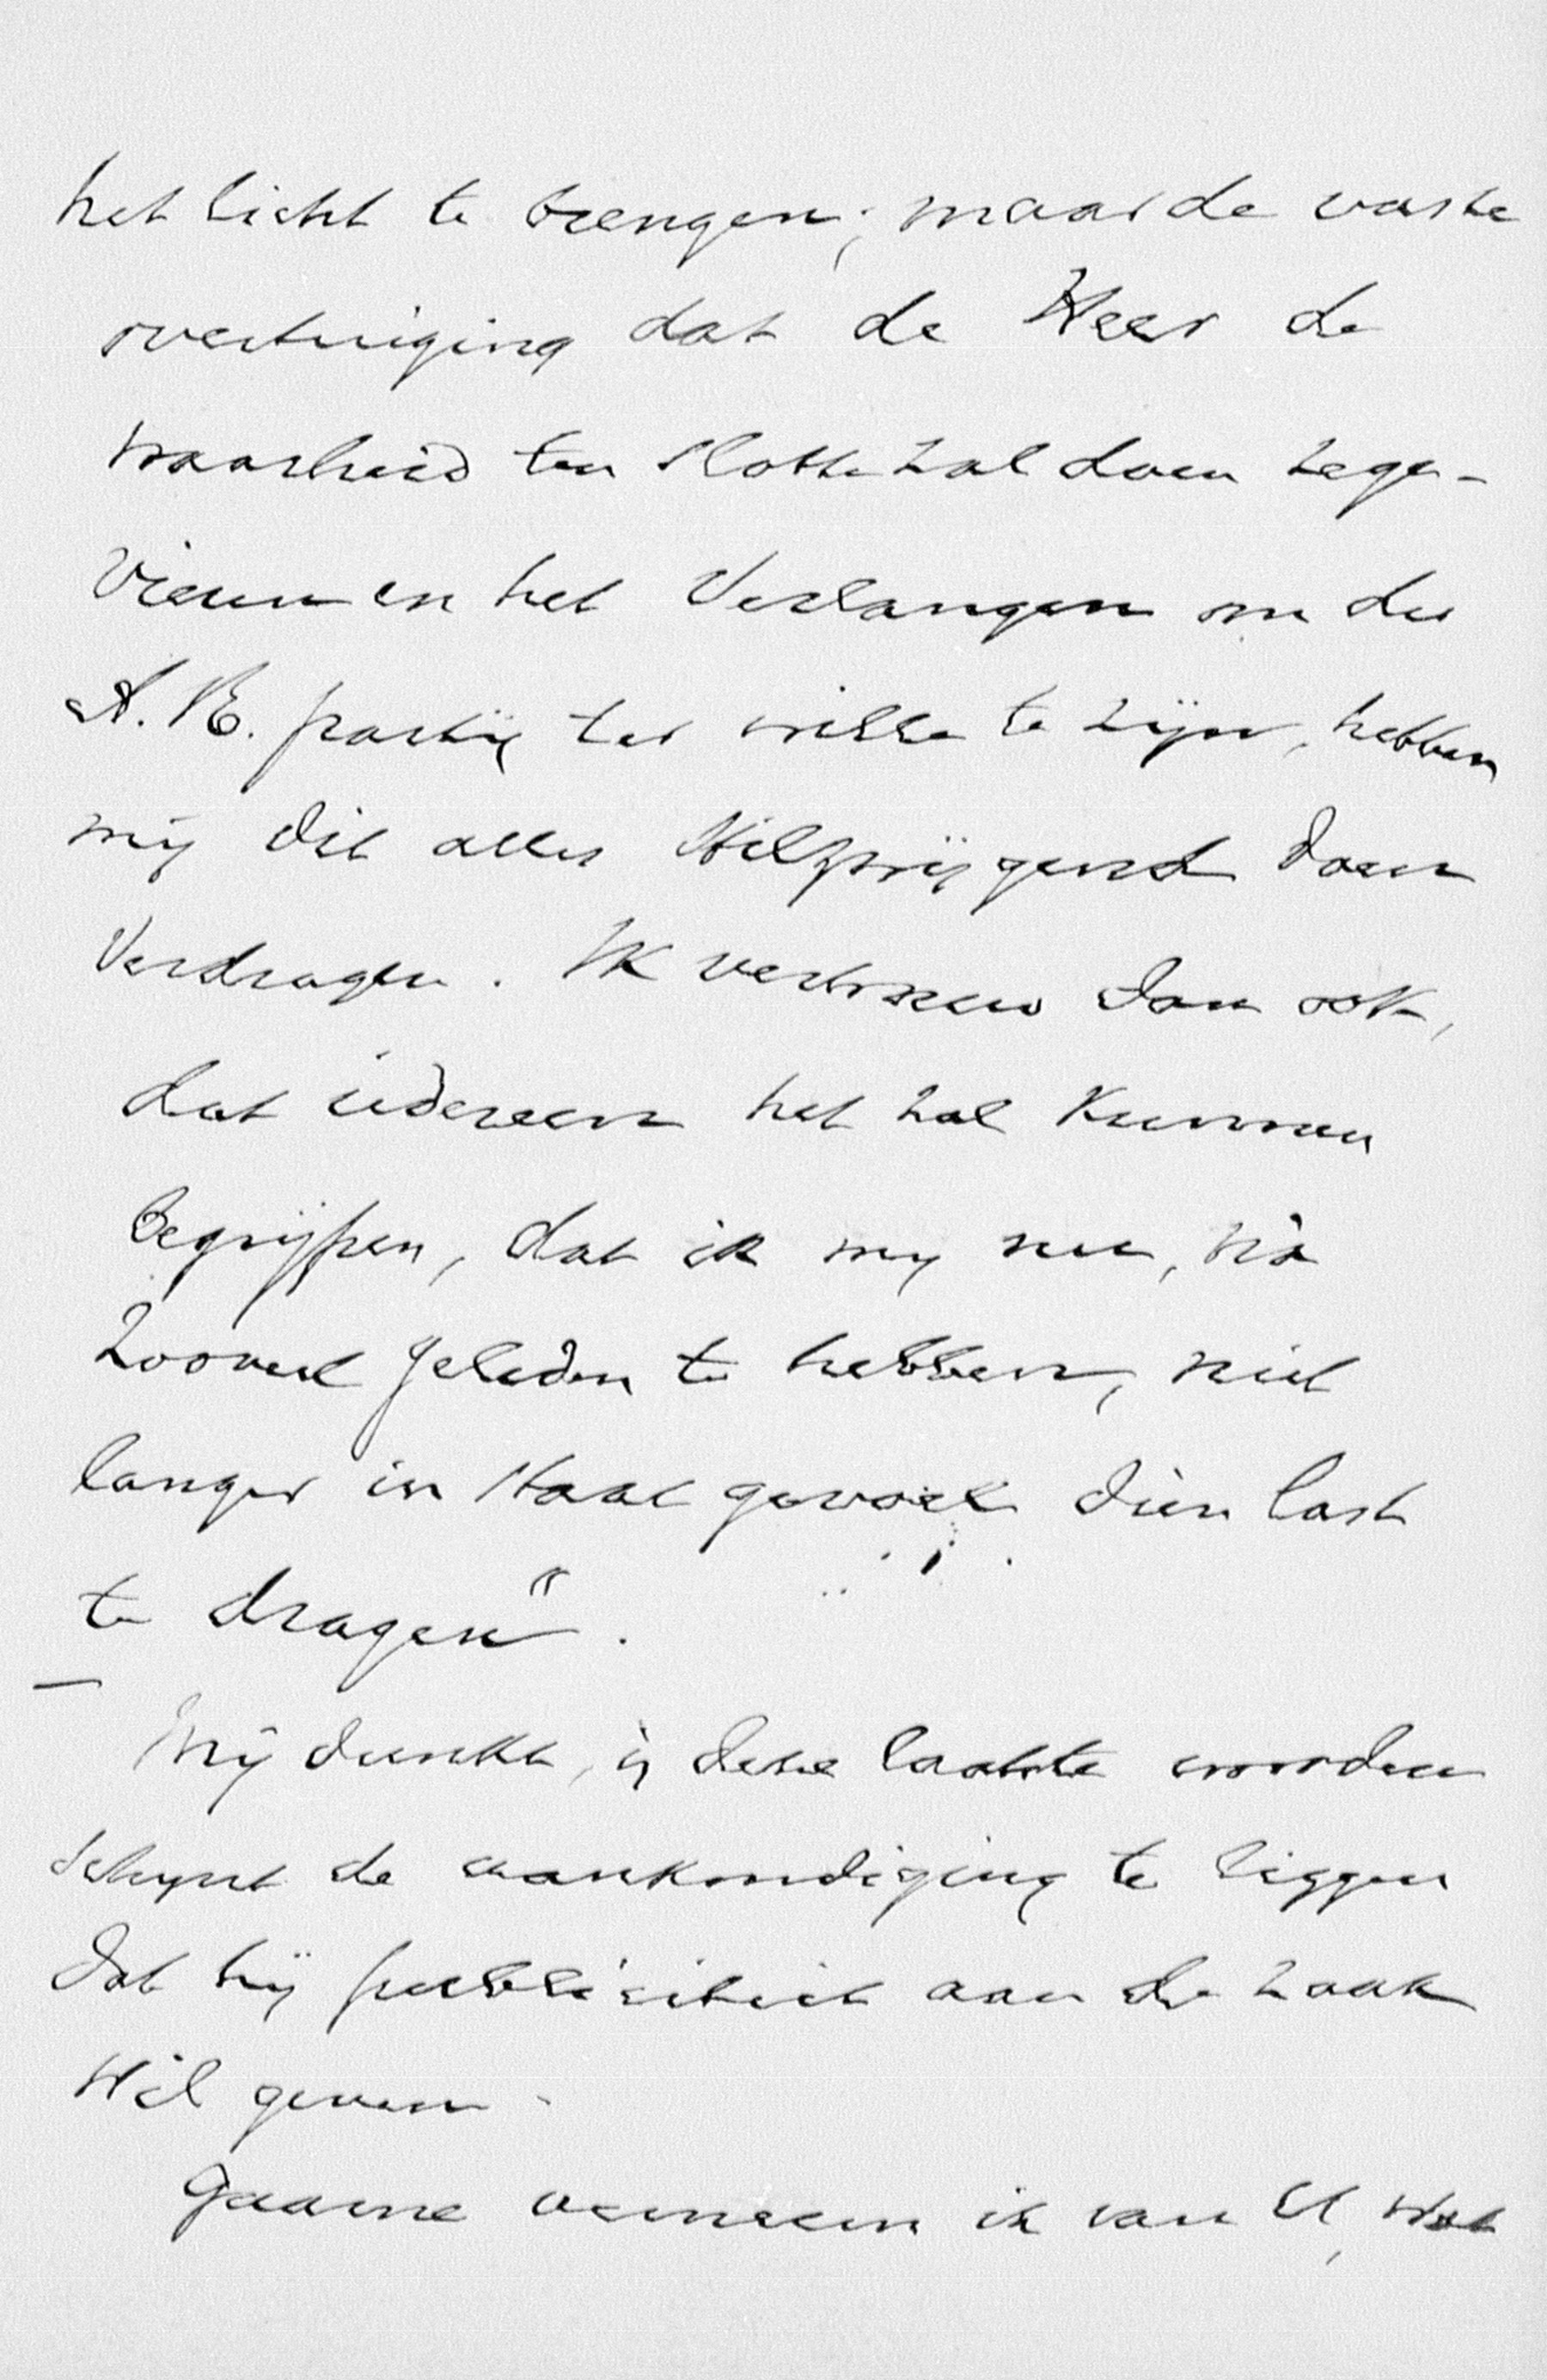 het licht te brengen; maar de vaste
overtuiging dat de Heer de
waarheid ten slotte zal doen zege-
vieren en het verlangen om der
A.R. partij ter wille te zijn, hebben
mij dit alles stilzwijgend doen
verdragen. Ik vertrouw dan ook,
dat iedereen het zal kunnen
begrijpen, dat ik mij nu, nà
zooveel geleden te hebben, niet
langer in staat gevoel dien last
te dragen".
Mij dunkt, in deze laatste woorden
schijnt de aankondiging te liggen
dat hij publiciteit aan de zaak
wil geven.
Gaarne verneem ik van U, wat